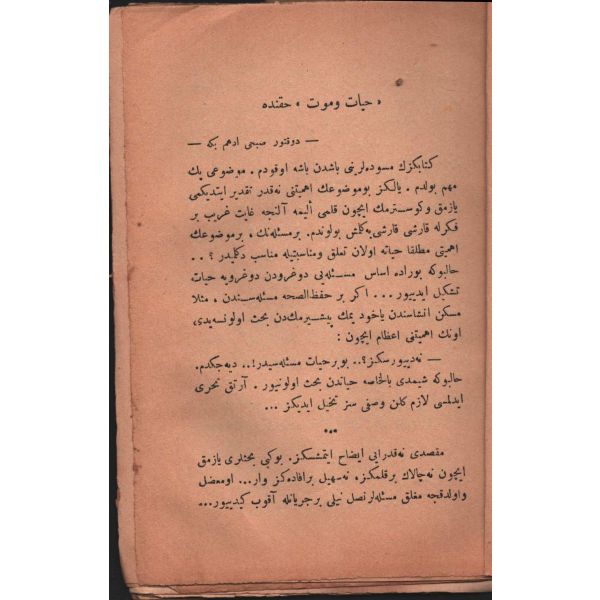 « حیات و موت » حقنده
— دوقتور صبحی ادهم بكه —
كتابكزك مسوده‌لرینی باشدن باشه اوقودم . موضوعی پك
مهم بولدم . یالكز بوموضوعك اهمیتنی نه‌قدر تقدیر ایتدیكمی
یازمق وكوسترمك ایچون قلمی ألیمه آلنجه غایت غریب بر
فكرله قارشی قارشی‌یه‌كلمش بولوندم. برمسئله‌نك ، برموضوعك
اهمیتی مطلقا حیاته اولان تعلق ومناسبتیله مناسب دكلیدر ؟ . .
حالبوكه بوراده اساس مسئله‌یی دوغرودن دوغرویه حیات
تشكیل ایدییور . . . اكر بر حفظ‌الصحه مسئله‌سندن ، مثلا
مسكن انشاسندن یاخود یمك پیشیرمك‌دن بحث اولونسه‌یدی،
اونك اهمیتنی اعظام ایچون :
— نه‌دییورسكز؟.. بوبرحیات مسئله‌سیدر!.. دیه‌جكدم.
حالبوكه شیمدی بالخاصه حیاتدن بحث اولونیور . آرتق تحری
ایدلمسی لازم كلن وصفی سز تخیل ایدیكز ...
***
مقصدی نه‌قدرایی ایضاح ایتمشسكز. بوكبی بحثلری یازمق
ایچون نه‌چالاك برقلمكز، نه‌سهیل برافاده‌كز وار... اومعضل
واولدقجه مغلق مسئله‌لرنصل نیلی برجریانله آقوب كیدییور...